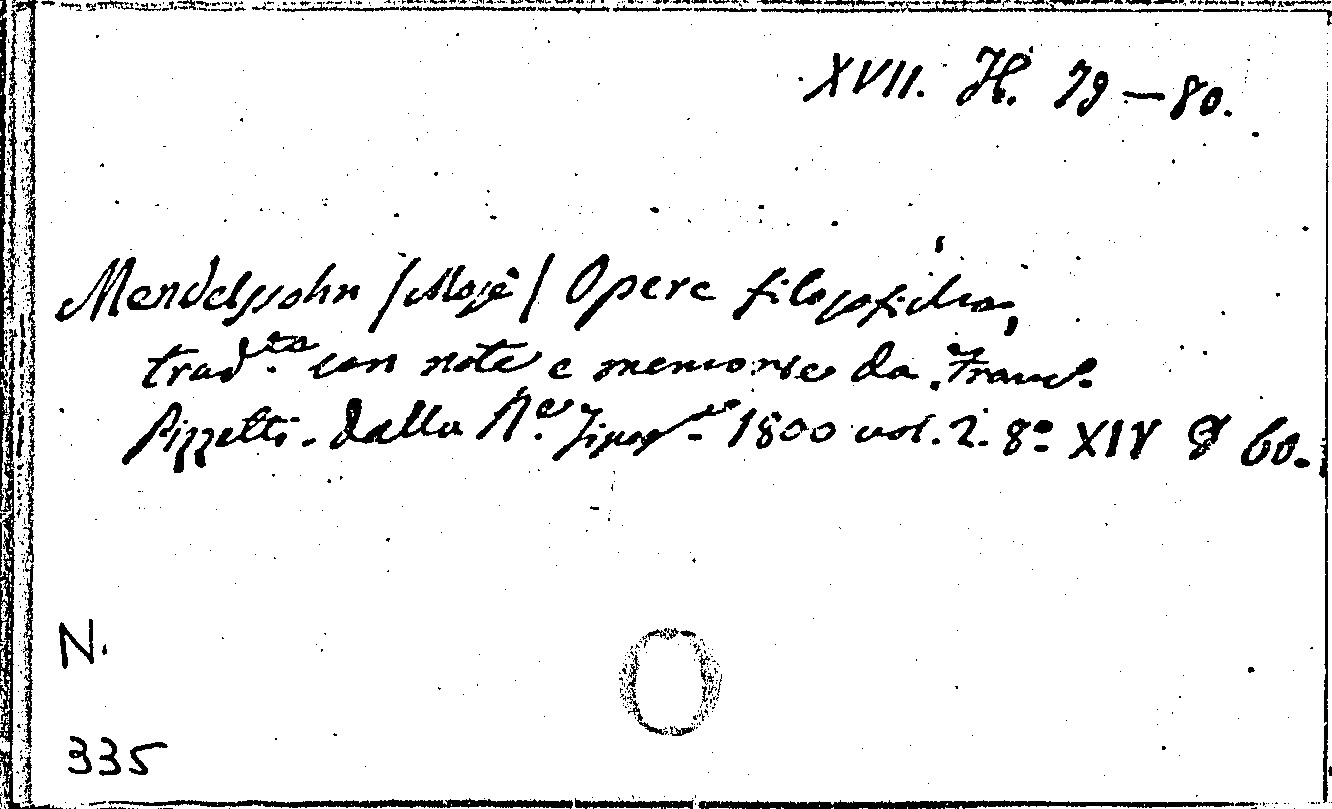 XVII. H. 79—80.
Mendelssohn /Mosè/ Opere filosofiche,
trad.te con note e memorie da Franc.
Pizzetti. Dalla R.e Tipog. 1800 vol. 2. 8º XIV 60.
N.
335